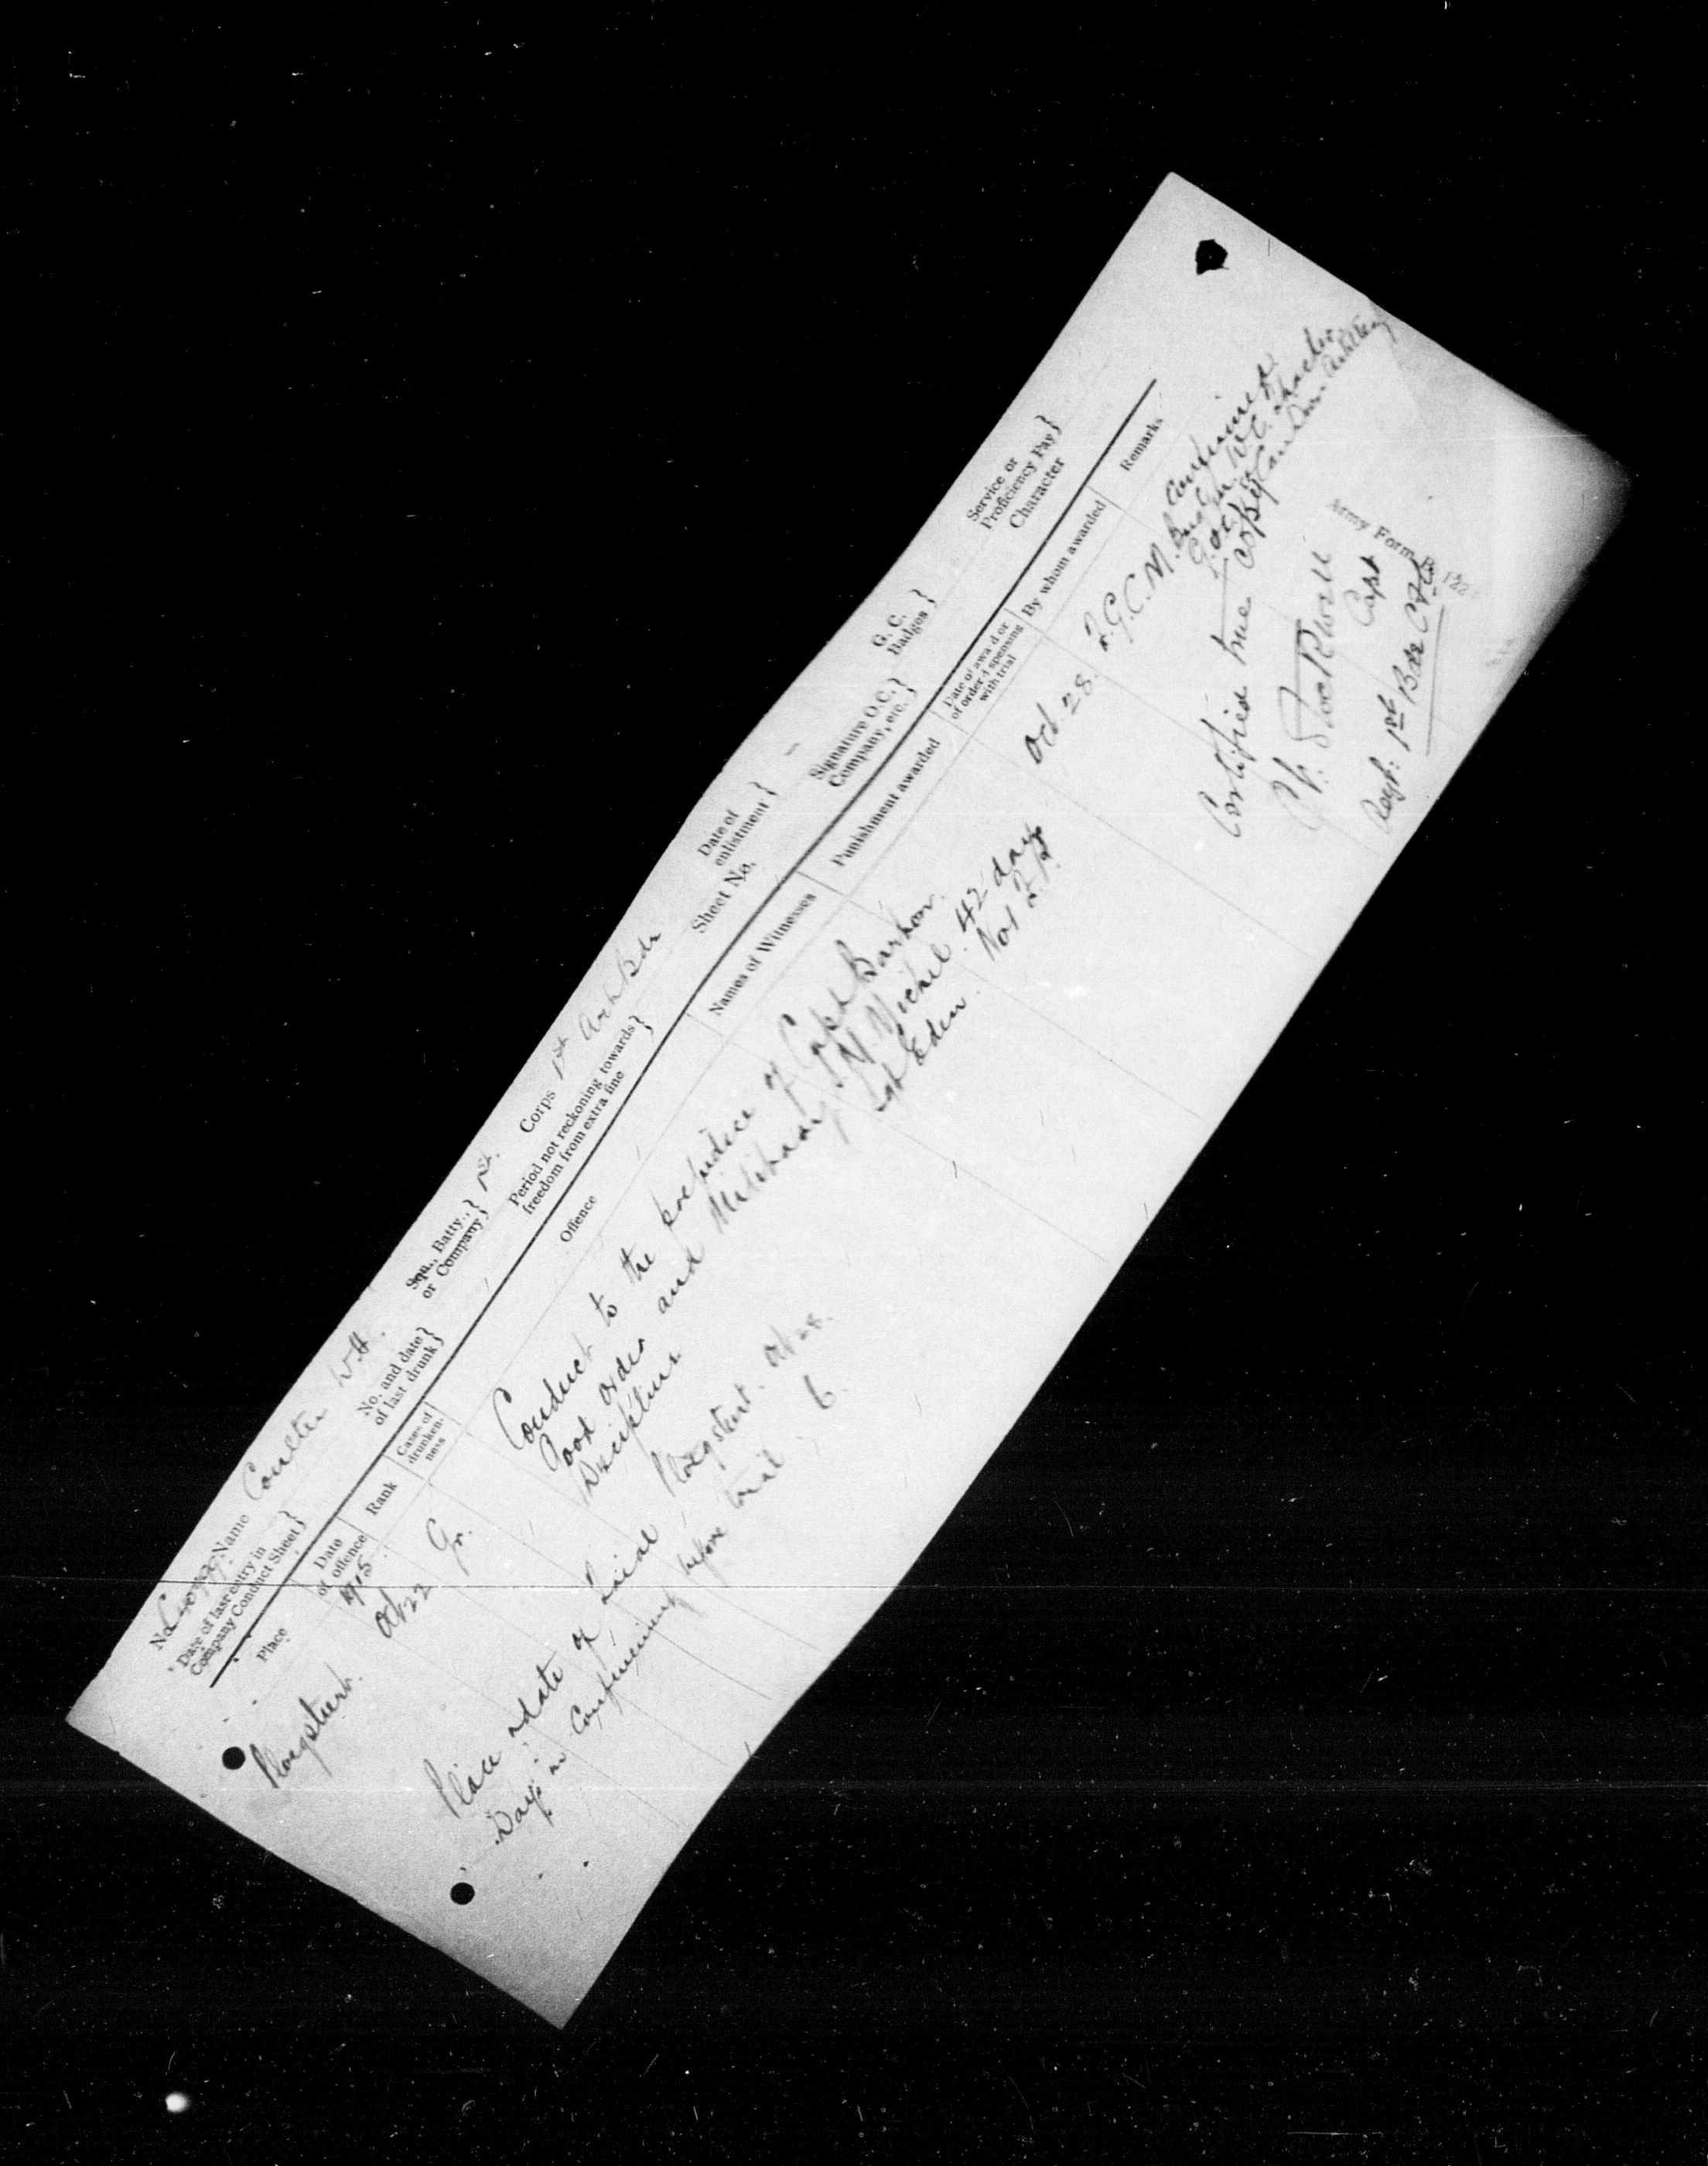 Army Form B. 122
No. Name Coulter W.H. Sqn., Batty., or Company} 1st. Corps 1st Art Bde Date of enlistment} Signature O.C. Company, etc.} G. C. Badges} Service or Proficiency Pay}
Date of last entry in Company Conduct Sheet} No. and date of last drunk} Period not reckoning towards freedom from extra fine} Sheet No. Character
Place Date of offence Rank Cases of drunkenness Offence Names of Witnesses Punishment awarded Date of award or of order dispensing with trial By whom awarded Remarks
1915.
Ploegsteert. Oct 22 Gr. Conduct to the prejudice of Capt 42 days Oct 28. F.G.C.M. Confirmed
Good order and Military Not F.P.
Discipline Sgt Eden.
Place & date of trial Ploegsteert. Oct 28. Certified true copy
Days in Confinement before trial 6. Stockwell
Capt
1st Bde C.F.A.